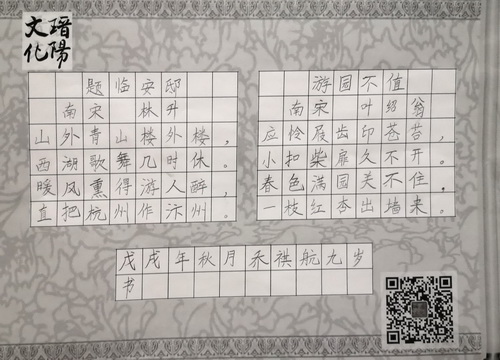 陽
文化
题临安邸
南宋 林升
山外青山楼外楼，
西湖歌舞几时休。
暖风熏得游人醉，
直把杭州作汴州。
游园不值
南宋 叶绍翁
应怜屐齿印苍苔，
小扣柴扉久不开。
春色满园关不住，
一枝红杏出墙来。
戊戌年秋月乔祺航九岁
书